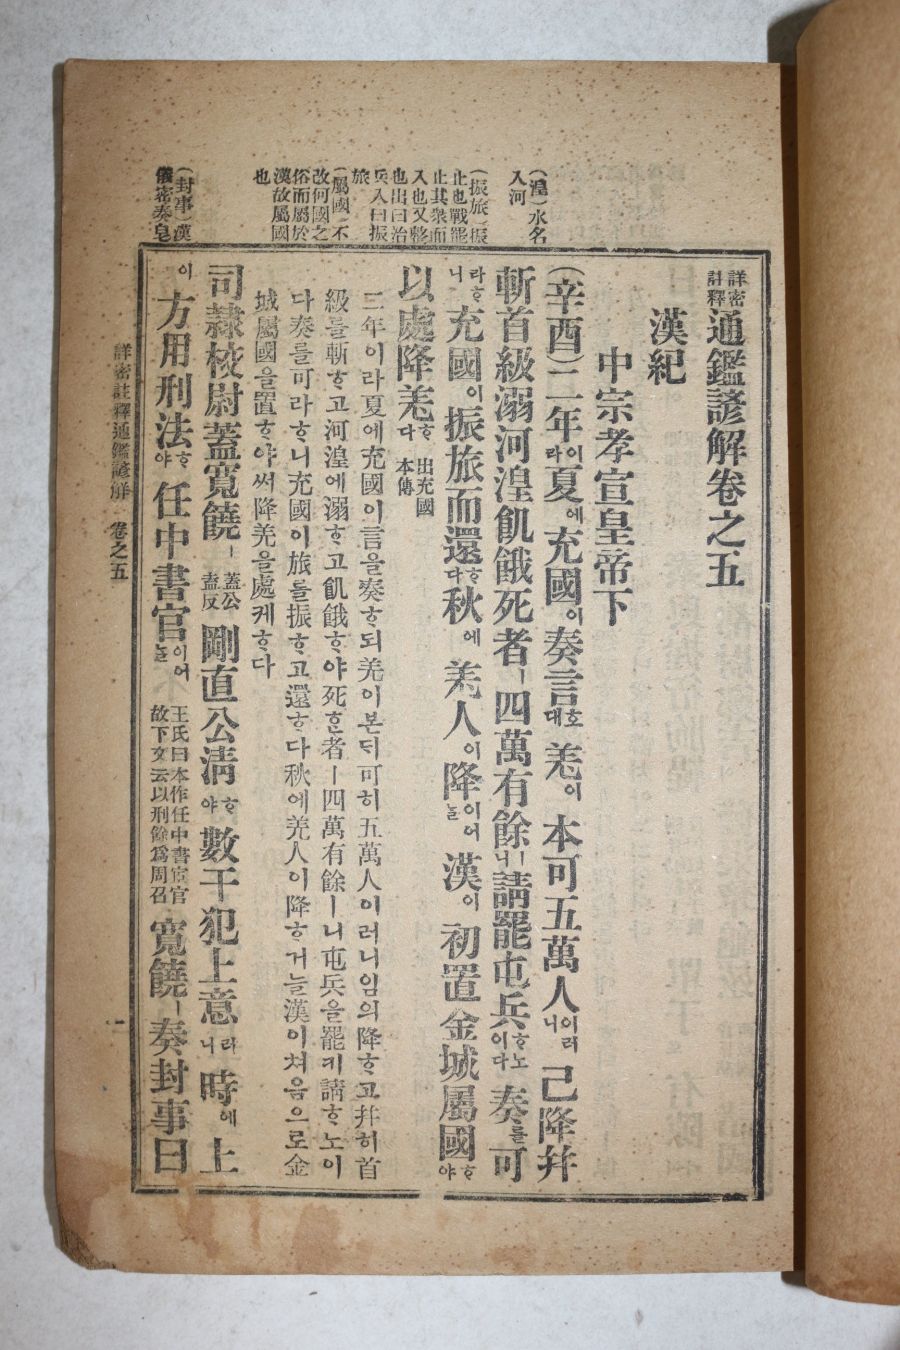 (湟)水名
入河
(振旅)振
止也戰罷
止其衆而
入也又整
也出曰治
兵入曰振
旅
(屬國)不
改何國之
俗而屬於
漢故屬國
也
(封事)漢
儀密奏皂
詳密註釋通鑑諺解卷之五
漢紀
中宗孝宣皇帝下
(辛酉)二年이라夏에充國이奏言호대羌이本可五萬人이러니已降幷
斬首級溺河湟飢餓死者ㅣ四萬有餘ㅣ니請罷屯兵ᄒᆞ노이다奏를可
라ᄒᆞ니充國이振旅而還ᄒᆞ다秋에羌人이降이어늘漢이初置金城屬國ᄒᆞ야
以處降羌ᄒᆞ다出充國本傳
二年이라夏에充國이言을奏ᄒᆞ되羌이본ᄃᆡ可히五萬人이러니임의降ᄒᆞ고幷히首
級을斬ᄒᆞ고河湟에溺ᄒᆞ고飢餓ᄒᆞ야死ᄒᆞᆫ者ㅣ四萬有餘ㅣ니屯兵을罷키請ᄒᆞ노이
다奏를可라ᄒᆞ니充國이旅를振ᄒᆞ고還ᄒᆞ다秋에羌人이降ᄒᆞ거늘漢이쳐음으로金
城屬國을置ᄒᆞ야써降羌을處케ᄒᆞ다
司隷校尉蓋寬饒ㅣ蓋公盍反剛直公淸ᄒᆞ야數干犯上意라니時에上
이方用刑法ᄒᆞ야任中書官이어늘王氏曰本作任中書宦官故下文云以刑餘爲周召寬饒ㅣ奏封事曰
詳密註釋通鑑諺解 卷之五
一